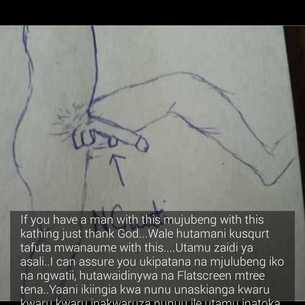 If you have a man with this mujubeng with this
kathing just thank God...Wale hutamani kusqurt
tafuta mwanaume with this....Utamu zaidi ya
asali..I can assure you ukipatana na mjulubeng iko
na ngwatii, hutawaidinywa na Flatscreen mtree
tena..Yaani ikiingia kwa nunu unaskianga kwaru
kwaru kwaru inakwaruza nunuu ile utamu inatoka